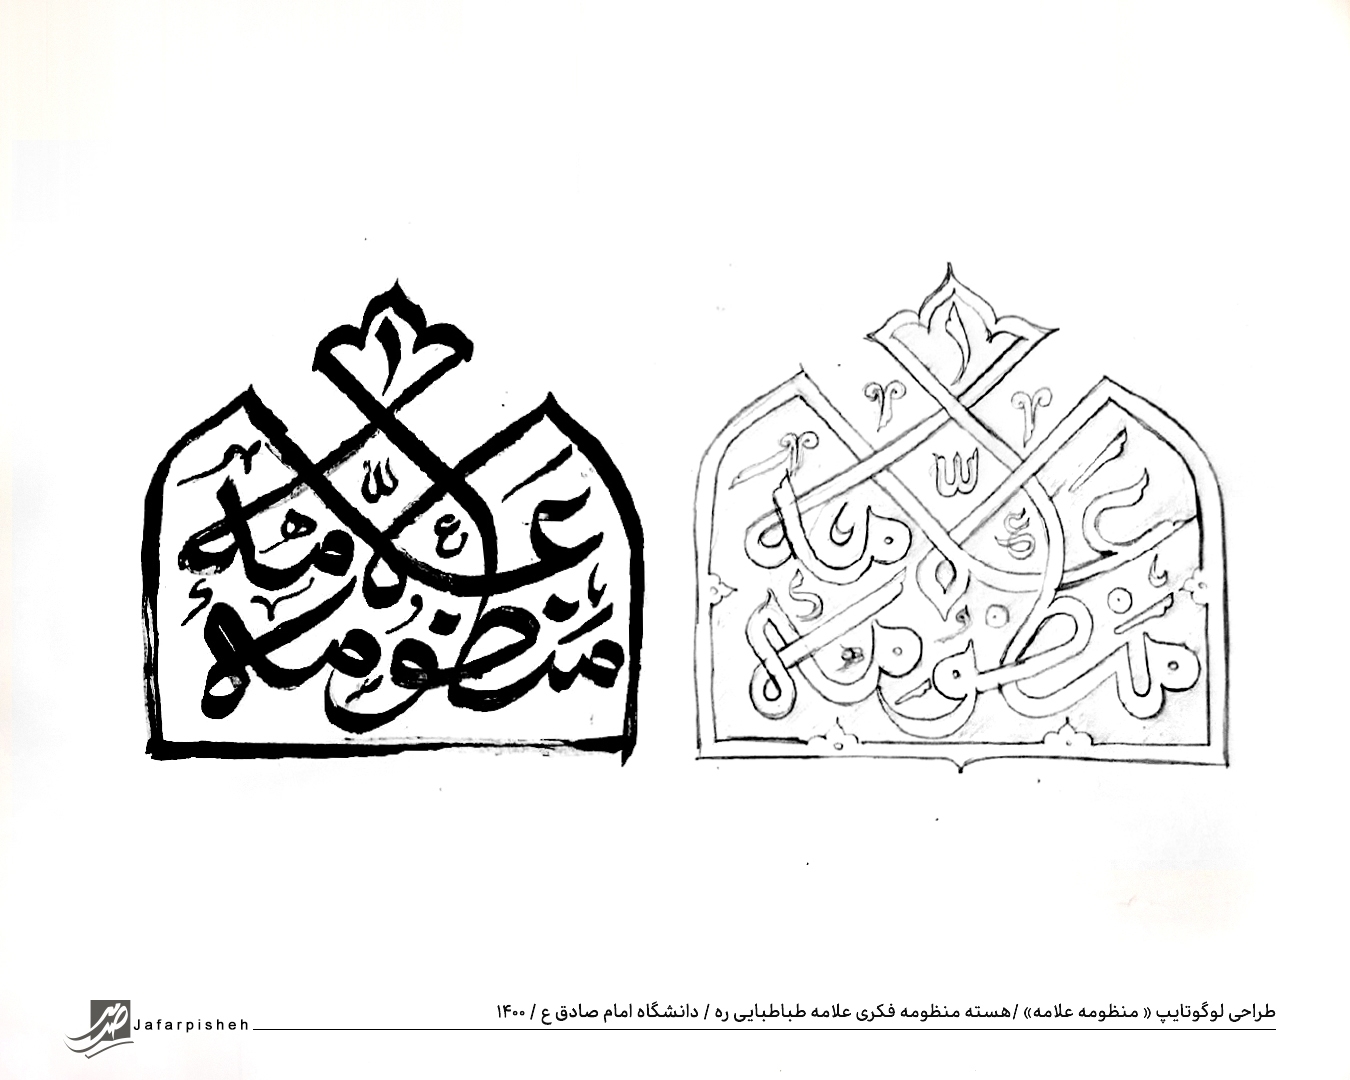 منظومه علامه
منظومه علامه
طراحی لوگوتایپ « منظومه علامه» /هسته منظومه فکری علامه طباطبایی ره / دانشگاه امام صادق ع / ۱۴۰۰
Jafarpisheh